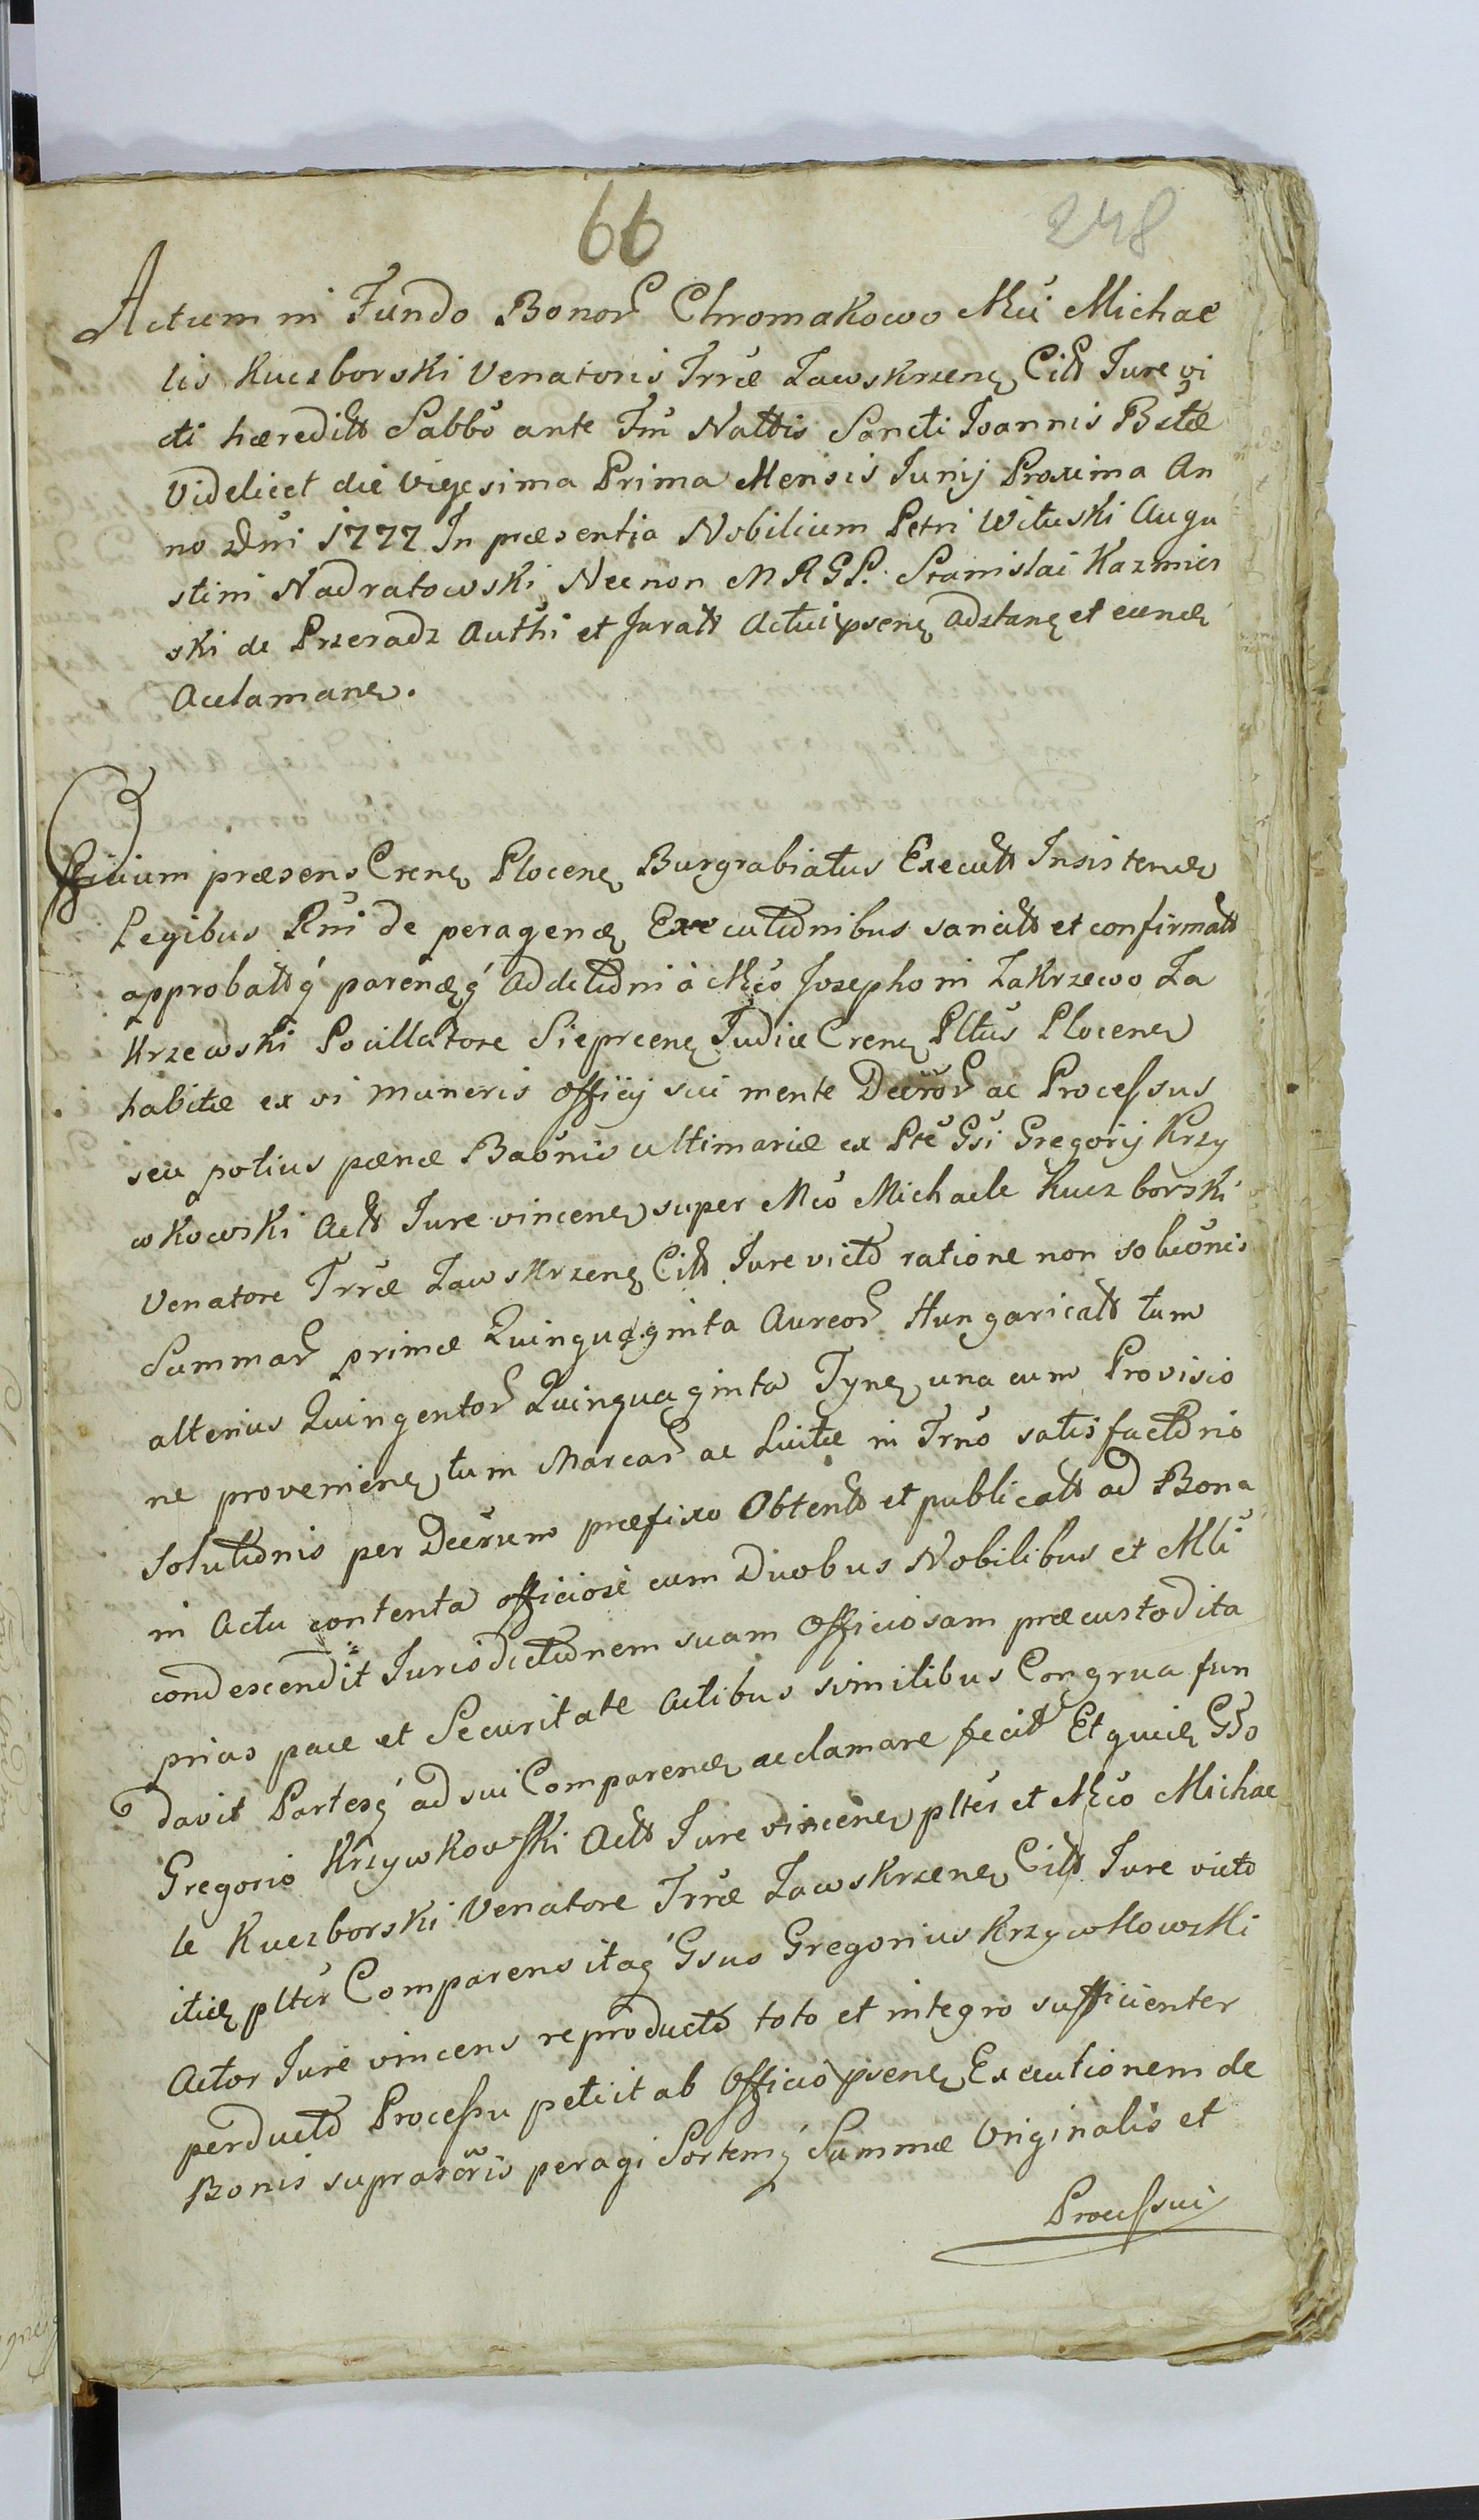 66
248
Actum in Fundo Bonor Chromakowo Mci Michae
lis Kuczborski Venatoris Trræ Zawskrzen Citt Jure vi
cti hæreditt Sabbo ante Fm Nattis Sancti Joannis Bstæ
Videlicet die Vigesima Prima Mensis Junij Proxima An
no Dni 1777 In præsentia Nobilium Petri Wituski Augu
stini Nadratowski Necnon M R G P. Stanislai Kazmier
ski de Przeradz Authi et Juratt Actui psen Adstan et eund
Acclaman.
Officium præsens Cren Plocen Burgrabiatus Executt Insistend
Legibus Rni de peragend Executionibus sancitt et confirmatt
approbattq parendq Addictoni à Mco Josepho in Zakrzewo Za
krzewski Pocillatore Sieprcen Judice Cren Pltus Plocen
habitæ ex vi muneris officij sui mente Decror ac Processus
seu potius pænæ Baonis ultimariæ ex Pte Gsi Gregorij Krzy
wkowski Actt Jure vincen super Mco Michaele Kuczborski
Venatore Trræ Zawskrzen Citt Jure victo ratione non soluonis
Summar primæ Quinquaginta Aureor Hungaricatt tum
alterius Quingentor Quinquaginta Tyn una cum Provisio
ne provenien tum Marcar ac Luitæ in Trno satisfactorio
Solutionis per Decrum præfixo Obtentt et publicatt ad Bona
in Actu contenta officiose cum Duobus Nobilibus et Mli
condescendit Jurisdictionem suam Officiosam præcustodita
prius pace et Securitate Actibus similibus Congrua fun
davit Partesq ad sui Comparend acclamare fecit Et quid Gso
Gregorio Krzywkowski Actt Jure vincen plter et Mco Michae
le Kuczborski Venatore Trræ Zawskrzen Citt Jure victo
itid plter Comparens itaq Gsus Gregorius Krzywkowski
Actor Jure vincens reproducto toto et integro sufficienter
perducto Processu petiit ab Officio psen Executionem de
Bonis suprascris peragi Sortemq Summæ Originalis et
Processui